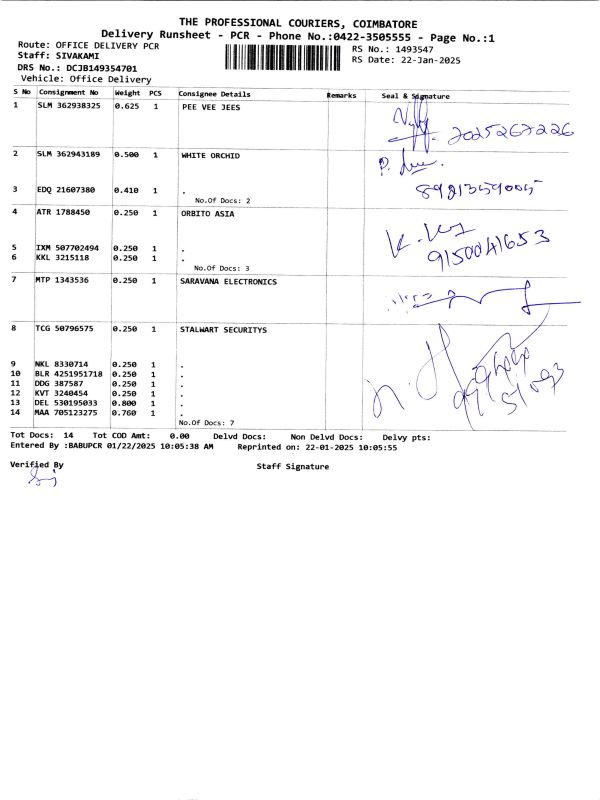 THE PROFESSIONAL COURIERS, COIMBATORE
Delivery Runsheet - PCR - Phone No.:0422-3505555 - Page No.:1
Route: OFFICE DELIVERY PCR
RS No.: 1493547
Staff: SIVAKAMI
RS Date: 22-Jan-2025
DRS No.: DCJB149354701
Vehicle: Office Delivery
S No Consignment No Weight PCS Consignee Details Remarks Seal & Signature
1 SLM 362938325 0.625 1 PEE VEE JEES
7025267226
2 SLM 362943189 0.500 1 WHITE ORCHID
3 EDQ 21607380 0.410 1 .
No.Of Docs: 2
4 ATR 1788450 0.250 1 ORBITO ASIA
9150041653
5 IXM 507702494 0.250 1 .
6 KKL 3215118 0.250 1 .
No.Of Docs: 3
7 MTP 1343536 0.250 1 SARAVANA ELECTRONICS
8 TCG 50796575 0.250 1 STALWART SECURITYS
9 NKL 8330714 0.250 1 .
10 BLR 4251951718 0.250 1 .
11 DDG 387587 0.250 1 .
12 KVT 3240454 0.250 1 .
13 DEL 530195033 0.800 1 .
14 MAA 705123275 0.760 1 .
No.Of Docs: 7
Tot Docs: 14 Tot COD Amt: 0.00 Delvd Docs: Non Delvd Docs: Delvy pts:
Entered By :BABUPCR 01/22/2025 10:05:38 AM Reprinted on: 22-01-2025 10:05:55
Verified By Staff Signature